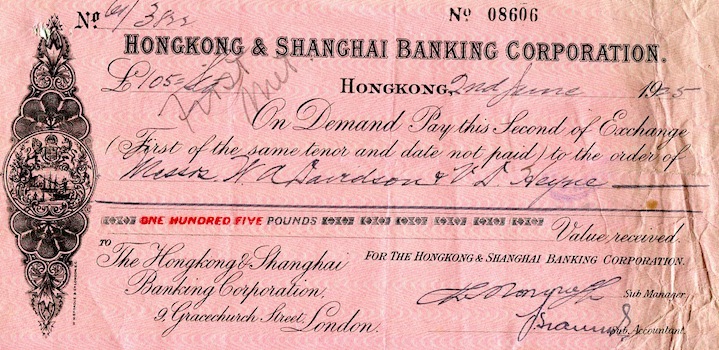 No 60/3822
No 08606
HONGKONG & SHANGHAI BANKING CORPORATION.
£105/-/-
First
HONGKONG, 2nd June 1925
On Demand Pay this Second of Exchange
(First of the same tenor and date not paid) to the order of
Messrs W. A. Davidson & V. D. Heyne
ONE HUNDRED FIVE POUNDS
Value received.
TO
The Hongkong & Shanghai
Banking Corporation,
9, Gracechurch Street, London.
FOR THE HONGKONG & SHANGHAI BANKING CORPORATION.
Sub Manager.
Sub. Accountant.